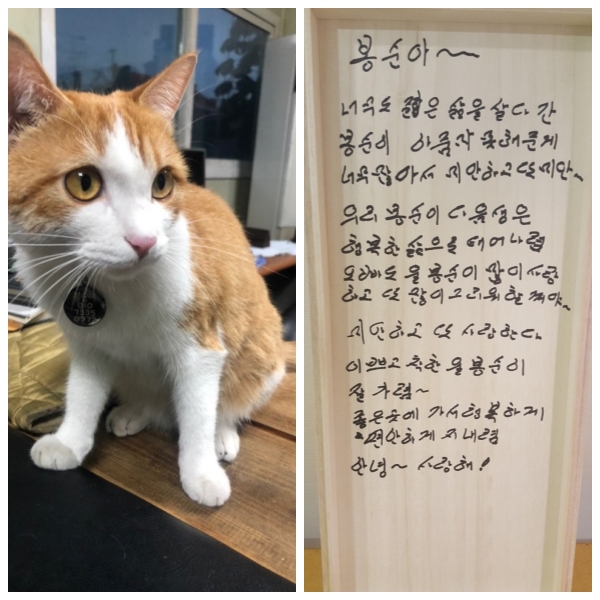 봉순아~
너무도 짧은 삶을 살다 간
봉순이 아직 못해준게
너무많아서 미안하고 또 미안~
우리 봉순이 다음생은
행복한 삶으로 태어나렴
오빠도 울 봉순이 많이 사랑
하고 또 많이 그리워 할꺼야~
미안하고 또 사랑한다
이쁘고 착한 울 봉순이
잘 가렴~
좋은곳에 가서 행복하게
편안하게 지내렴
안녕~ 사랑해!